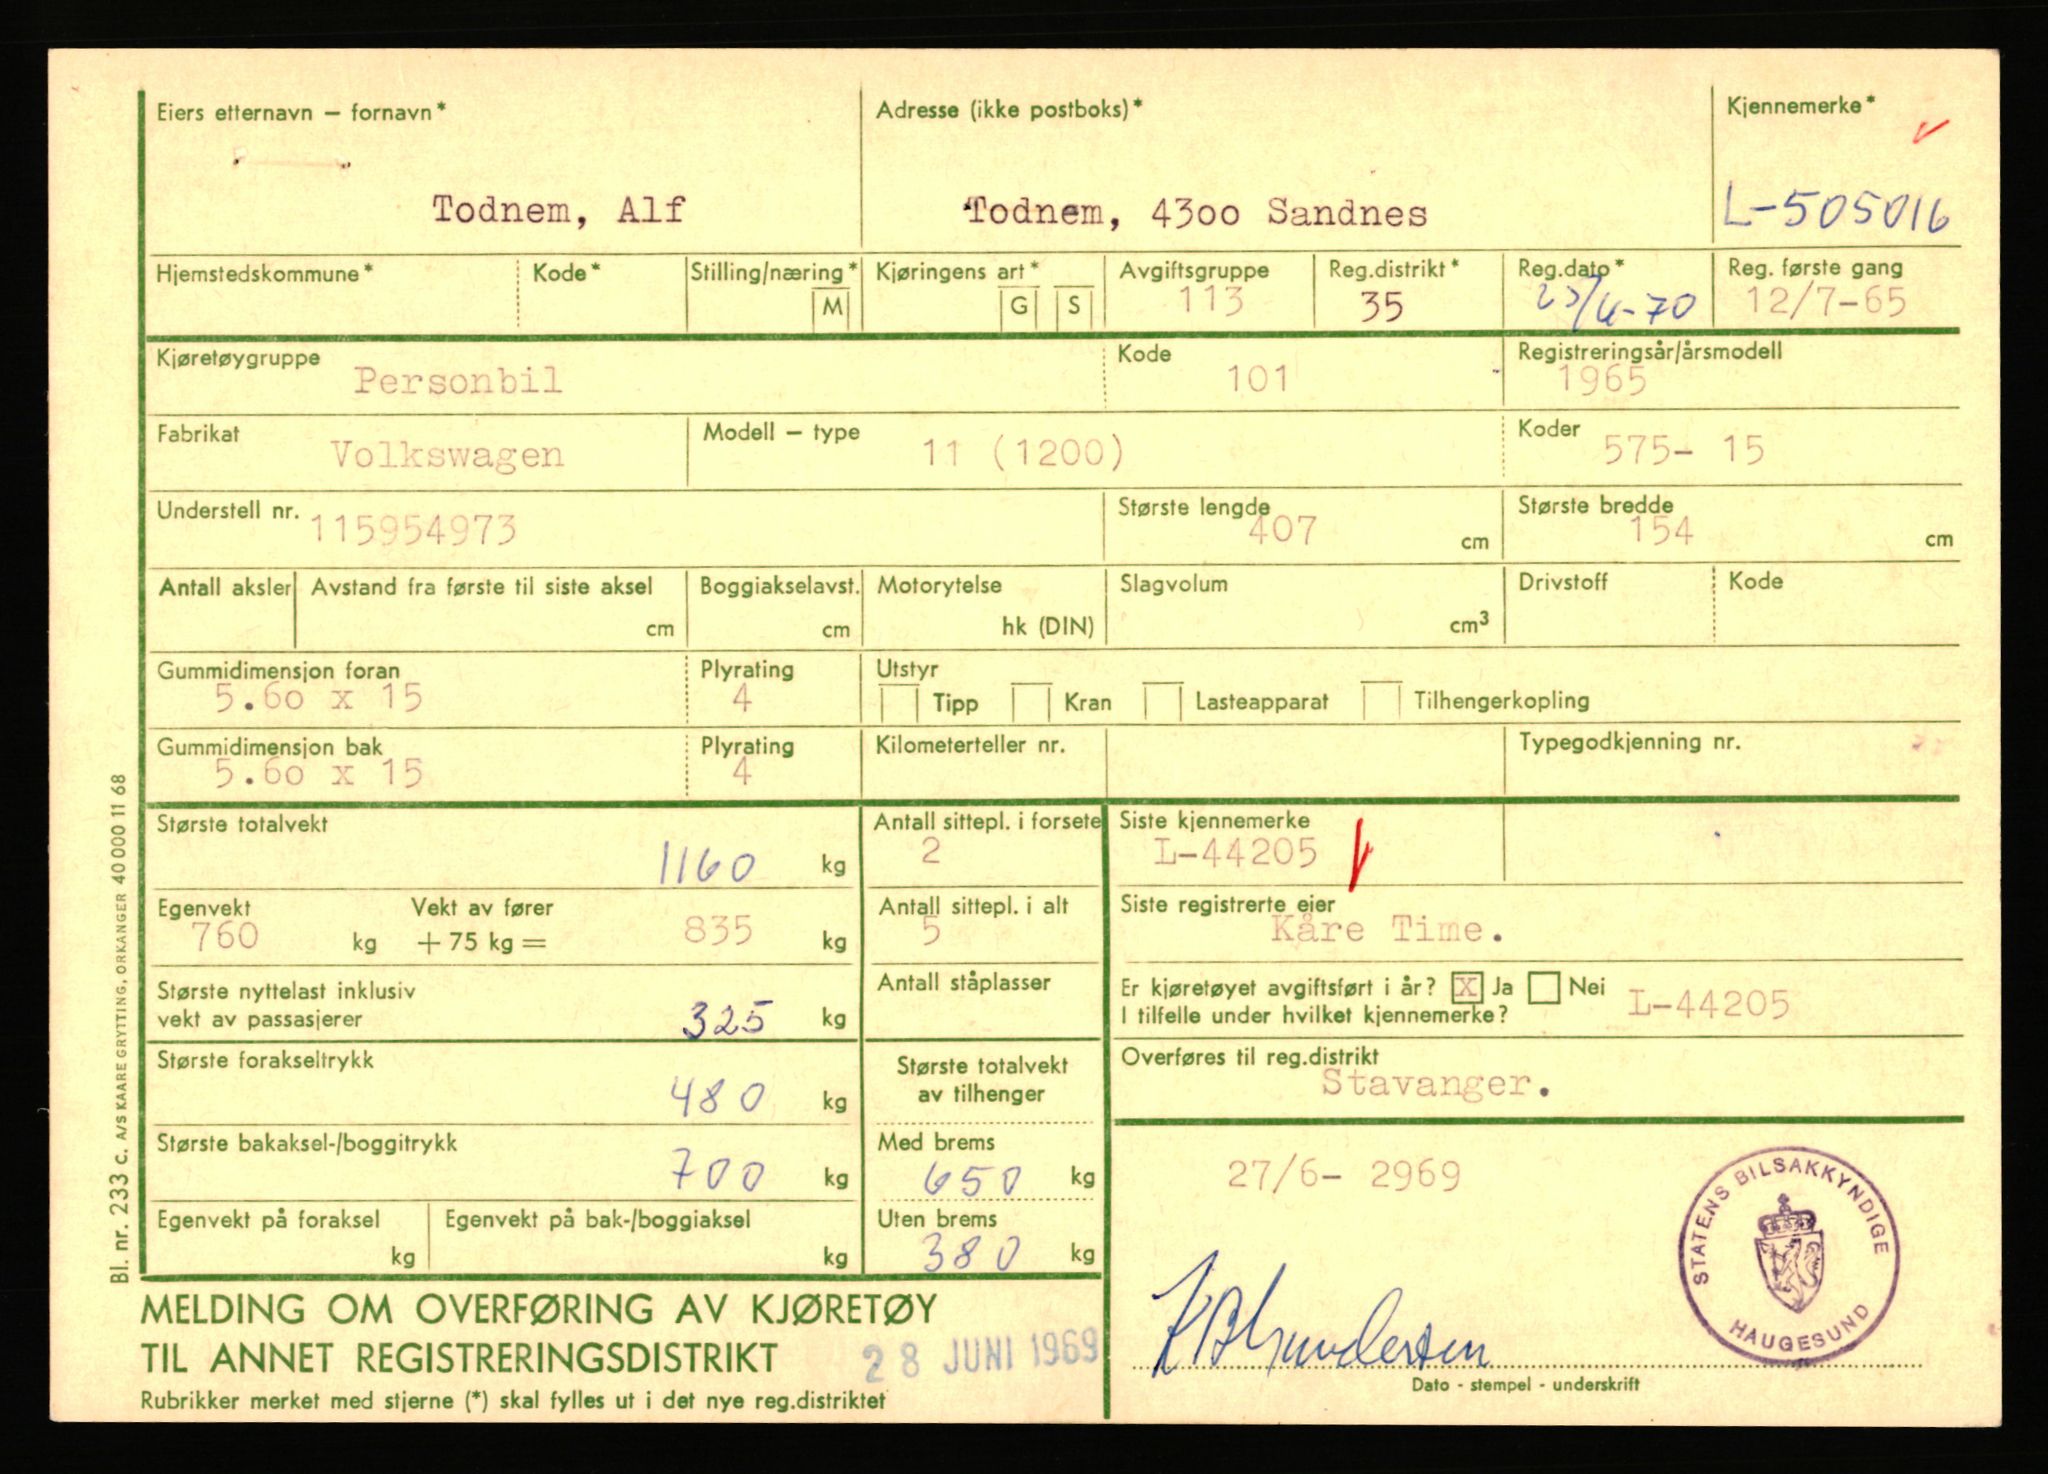 Eiers etternavn – fornavn*
Todnem, Alf
Adresse (ikke postboks)*
Todnem, 4300 Sandnes
Kjennemerke*
L-505016
Hjemstedskommune*
Kode*
Stilling/næring*
M
Kjøringens art*
G S
Avgiftsgruppe
113
Reg.distrikt*
35
Reg.dato*
-70
Reg. første gang
12/7-65
Kjøretøygruppe
Personbil
Kode
101
Registreringsår/årsmodell
1965
Fabrikat
Volkswagen
Modell – type
11 (1200)
Koder
575- 15
Understell nr.
115954973
Største lengde
407 cm
Største bredde
154 cm
Antall aksler
Avstand fra første til siste aksel
cm
Boggiakselavst.
cm
Motorytelse
hk (DIN)
Slagvolum
cm3
Drivstoff
Kode
Gummidimensjon foran
5.60 x 15
Plyrating
4
Utstyr
Tipp Kran Lasteapparat Tilhengerkopling
Gummidimensjon bak
5.60 x 15
Plyrating
4
Kilometerteller nr.
Typegodkjenning nr.
Største totalvekt
1160 kg
Antall sittepl. i forsete
2
Siste kjennemerke
L-44205
Egenvekt
760 kg
Vekt av fører
+ 75 kg = 835 kg
Antall sittepl. i alt
5
Siste registrerte eier
Kåre Time.
Største nyttelast inklusiv
vekt av passasjerer
325 kg
Antall ståplasser
Er kjøretøyet avgiftsført i år? X Ja Nei
I tilfelle under hvilket kjennemerke?
L-44205
Største forakseltrykk
480 kg
Største totalvekt
av tilhenger
Overføres til reg.distrikt
Stavanger.
Største bakaksel-/boggitrykk
700 kg
Med brems
650 kg
27/6- 2969
Egenvekt på foraksel
kg
Egenvekt på bak-/boggiaksel
kg
Uten brems
380 kg
STATENS BILSAKKYNDIGE
HAUGESUND
MELDING OM OVERFØRING AV KJØRETØY
TIL ANNET REGISTRERINGSDISTRIKT
28 JUNI 1969
Rubrikker merket med stjerne (*) skal fylles ut i det nye reg.distriktet
Dato - stempel - underskrift
Bl. nr. 233 c. A/S KAARE GRYTTING, ORKANGER 40 000 11 68